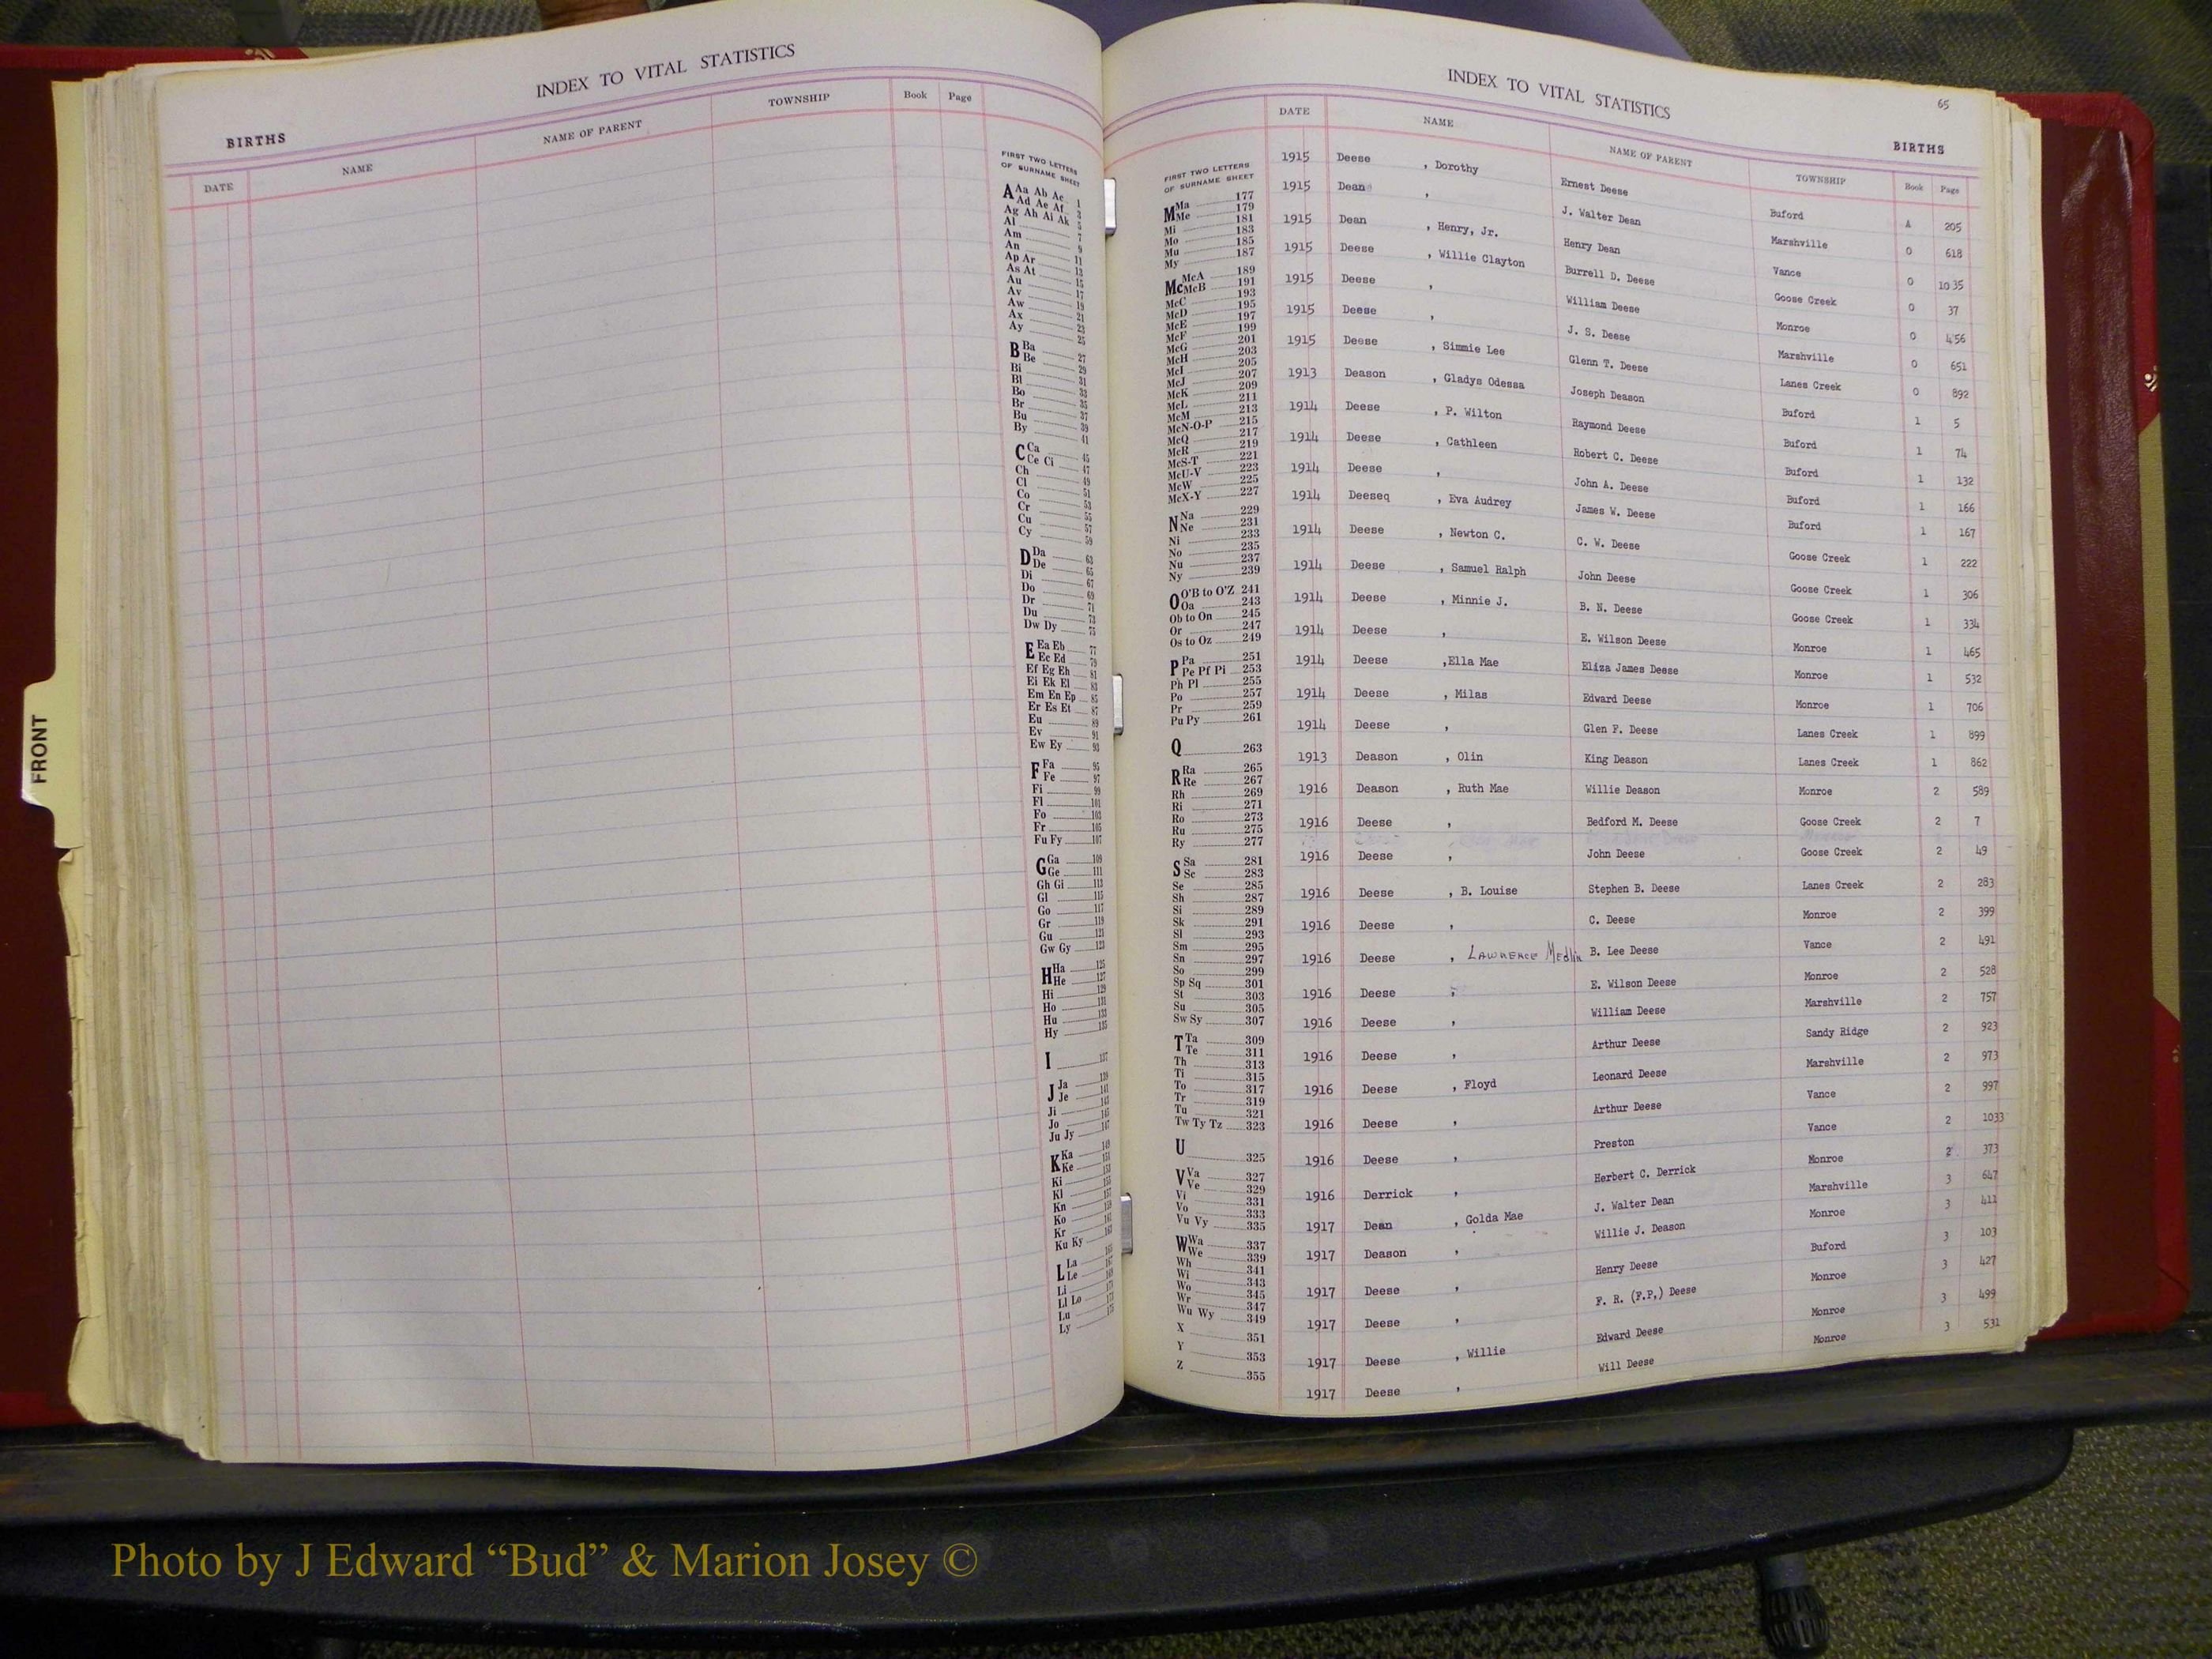 INDEX TO VITAL STATISTICS
BIRTHS
DATE NAME NAME OF PARENT TOWNSHIP Book Page
FIRST TWO LETTERS
OF SURNAME SHEET
A Aa Ab Ac 1
Ad Ae Af 3
Ag Ah Ai Ak 5
Al 7
Am 9
An 11
Ap Ar 13
As At 15
Au 17
Av 19
Aw 21
Ax 23
Ay 25
B Ba 27
Be 29
Bi 31
Bl 33
Bo 35
Br 37
Bu 39
By 41
C Ca 45
Ce Ci 47
Ch 49
Cl 51
Co 53
Cr 55
Cu 57
Cy 59
D Da 63
De 65
Di 67
Do 69
Dr 71
Du 73
Dw Dy 75
E Ea Eb 77
Ec Ed 79
Ef Eg Eh 81
Ei Ek El 83
Em En Ep 85
Er Es Et 87
Eu 89
Ev 91
Ew Ey 93
F Fa 95
Fe 97
Fi 99
Fl 101
Fo 103
Fr 105
Fu Fy 107
G Ga 109
Ge 111
Gh Gi 113
Gl 115
Go 117
Gr 119
Gu 121
Gw Gy 123
H Ha 125
He 127
Hi 129
Ho 131
Hu 133
Hy 135
I 137
J Ja 139
Je 141
Ji 143
Jo 145
Ju Jy 147
K Ka 149
Ke 151
Ki 153
Kl 155
Kn
Ko
Kr
Ku Ky
L La
Le
Li
Ll Lo
Lu
Ly
INDEX TO VITAL STATISTICS
65
BIRTHS
DATE NAME NAME OF PARENT TOWNSHIP Book Page
FIRST TWO LETTERS
OF SURNAME SHEET
M Ma 177
Me 179
Mi 181
Mo 183
Mu 185
My 187
Mc McA 189
McB 191
McC 193
McD 195
McE 197
McF 199
McG 201
McH 203
McI 205
McJ 207
McK 209
McL 211
McM 213
McN-O-P 215
McQ 217
McR 219
McS-T 221
McU-V 223
McW 225
McX-Y 227
N Na 229
Ne 231
Ni 233
No 235
Nu 237
Ny 239
O O'B to O'Z 241
Oa 243
Ob to On 245
Or 247
Os to Oz 249
P Pa 251
Pe Pf Pi 253
Ph Pl 255
Po 257
Pr 259
Pu Py 261
Q 263
R Ra 265
Re 267
Rh 269
Ri 271
Ro 273
Ru 275
Ry 277
S Sa 281
Sc 283
Se 285
Sh 287
Si 289
Sk 291
Sl 293
Sm 295
Sn 297
So 299
Sp Sq 301
St 303
Su 305
Sw Sy 307
T Ta 309
Te 311
Th 313
Ti 315
To 317
Tr 319
Tu 321
Tw Ty Tz 323
U 325
V Va 327
Ve 329
Vi 331
Vo 333
Vu Vy 335
W Wa 337
We 339
Wh 341
Wi 343
Wo 345
Wr 347
Wu Wy 349
X 351
Y 353
Z 355
1915 Deese , Dorothy Ernest Deese Buford A 205
1915 Dean , J. Walter Dean Marshville 0 618
1915 Dean , Henry, Jr. Henry Dean Vance 0 1035
1915 Deese , Willie Clayton Burrell D. Deese Goose Creek 0 37
1915 Deese , William Deese Monroe 0 456
1915 Deese , J. S. Deese Marshville 0 651
1915 Deese , Simmie Lee Glenn T. Deese Lanes Creek 0 892
1913 Deason , Gladys Odessa Joseph Deason Buford 1 5
1914 Deese , P. Wilton Raymond Deese Buford 1 74
1914 Deese , Cathleen Robert C. Deese Buford 1 132
1914 Deese , John A. Deese Buford 1 166
1914 Deeseq , Eva Audrey James W. Deese Buford 1 167
1914 Deese , Newton C. C. W. Deese Goose Creek 1 222
1914 Deese , Samuel Ralph John Deese Goose Creek 1 306
1914 Deese , Minnie J. B. N. Deese Goose Creek 1 334
1914 Deese , E. Wilson Deese Monroe 1 465
1914 Deese ,Ella Mae Eliza James Deese Monroe 1 532
1914 Deese , Milas Edward Deese Monroe 1 706
1914 Deese , Glen F. Deese Lanes Creek 1 899
1913 Deason , Olin King Deason Lanes Creek 1 862
1916 Deason , Ruth Mae Willie Deason Monroe 2 589
1916 Deese , Bedford M. Deese Goose Creek 2 7
1916 Deese , John Deese Goose Creek 2 49
1916 Deese , B. Louise Stephen B. Deese Lanes Creek 2 283
1916 Deese , C. Deese Monroe 2 399
1916 Deese , Lawrence Medlin B. Lee Deese Vance 2 491
1916 Deese , E. Wilson Deese Monroe 2 528
1916 Deese , William Deese Marshville 2 757
1916 Deese , Arthur Deese Sandy Ridge 2 923
1916 Deese , Floyd Leonard Deese Marshville 2 973
1916 Deese , Arthur Deese Vance 2 997
1916 Deese , Preston Vance 2 1033
1916 Derrick , Herbert C. Derrick Monroe 2 373
1917 Dean , Golda Mae J. Walter Dean Marshville 3 647
1917 Deason , Willie J. Deason Monroe 3 411
1917 Deese , Henry Deese Buford 3 103
1917 Deese , F. R. (F.P,) Deese Monroe 3 427
1917 Deese , Willie Edward Deese Monroe 3 499
1917 Deese , Will Deese Monroe 3 531
FRONT
Photo by J Edward “Bud” & Marion Josey ©